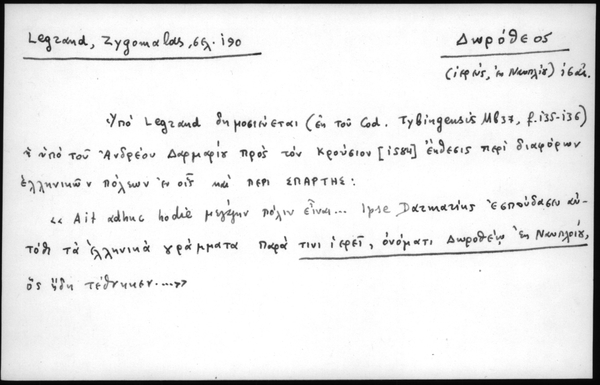 Legrand, Zygomalas, σελ. 190
Δωρόθεος
(ἱερεύς, ἐκ Ναυπλίου)
Ὑπό Legrand δημοσιεύεται (ἐκ τοῦ Cod. Tybingensis Mb37, f. 135-136)
ἡ ὑπό τοῦ Ἀνδρέου Δαρμαρίου πρὸς τόν Κρούσιον [1584] ἔκθεσις περί διαφόρων
ἑλληνικῶν πόλεων ἐν οἷς καί περί ΣΠΑΡΤΗΣ:
« Ait adhuc hodie μεγάλην πόλιν εἶναι... Ipse Darmarius ἐσπούδασεν αὐ-
τόθι τά ἑλληνικά γράμματα παρά τινι ἱερεῖ, ὀνόματι Δωροθέῳ ἐκ Ναυπλίου,
ὅς ἤδη τέθνηκεν....»